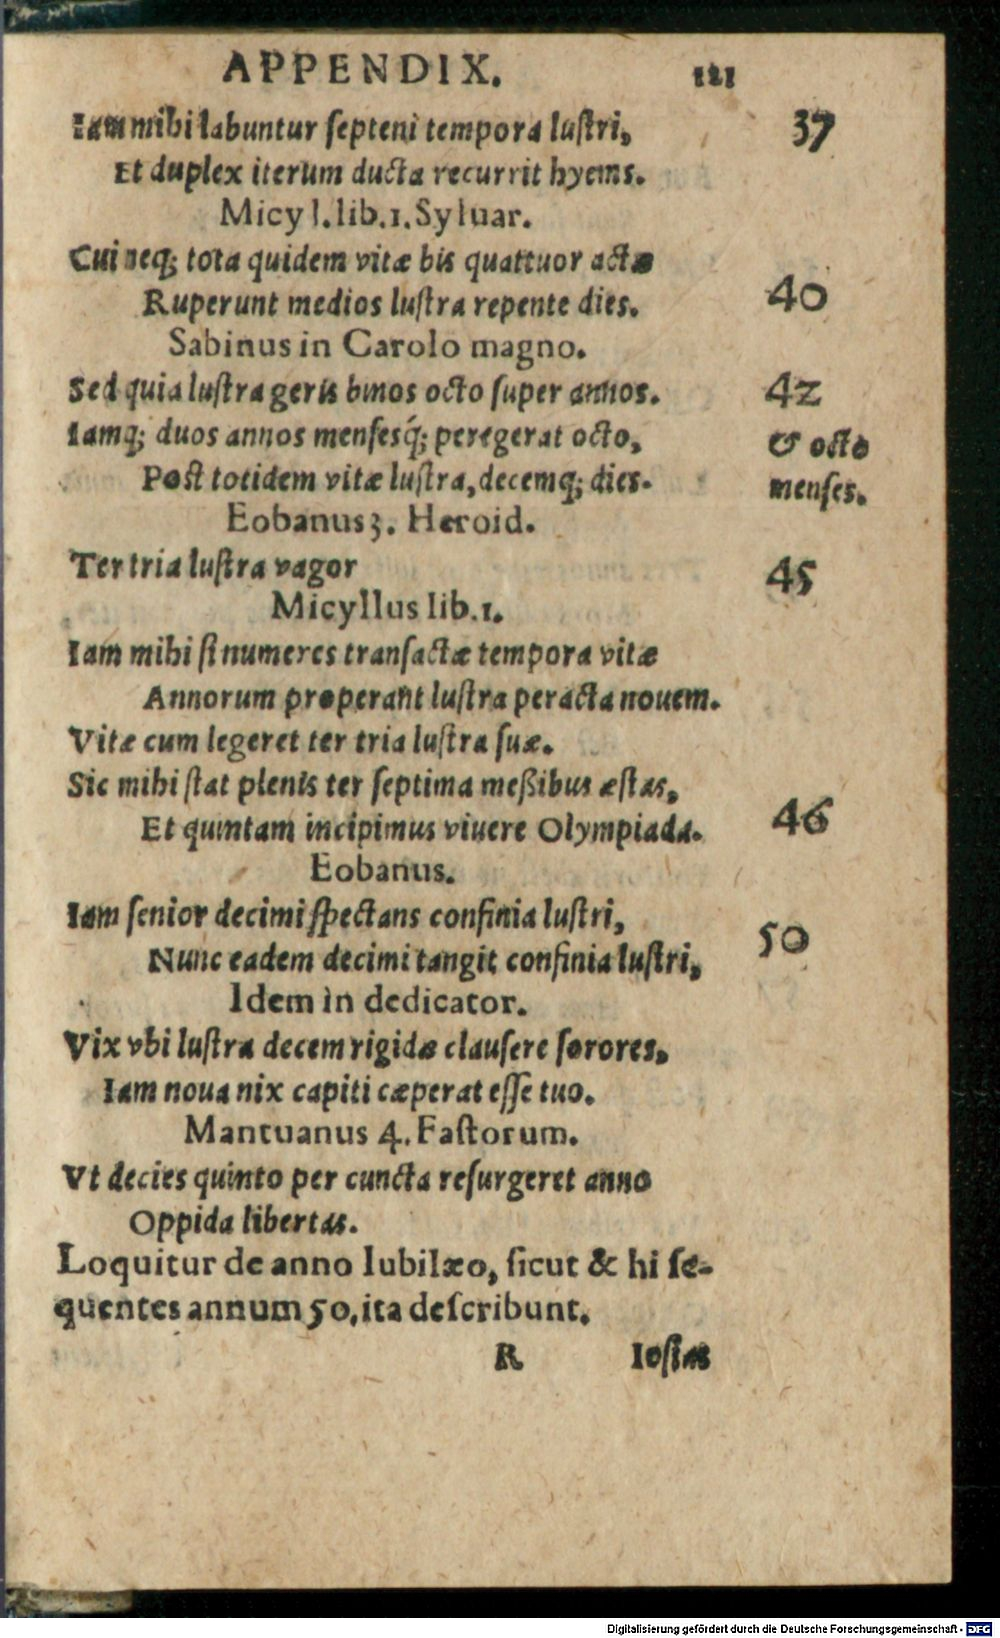 APPENDIX. 121
Iam mihi labuntur ſepteni tempora luſtri, 37
Et duplex iterum ducta recurrit hyems.
Micyl. lib. 1. Syluar.
Cui neq; tota quidem vitæ bis quattuor actæ
Ruperunt medios luſtra repente dies. 40
Sabinus in Carolo magno.
Sed quia luſtra geris binos octo ſuper annos. 42
Iamq; duos annos menſesq́; peregerat octo, & octo
Poſt totidem vitæ luſtra, decemq; dies. menſes.
Eobanus 3. Heroid.
Ter tria luſtra vagor 45
Micyllus lib. 1.
Iam mihi ſi numeres tranſactæ tempora vitæ
Annorum properant luſtra peracta nouem.
Vitæ cum legeret ter tria luſtra ſuæ.
Sic mihi ſtat plenis ter ſeptima meßibus æſtas,
Et quintam incipimus viuere Olympiada. 46
Eobanus.
Iam ſenior decimi ſpectans confinia luſtri,
Nunc eadem decimi tangit confinia luſtri, 50
Idem in dedicator.
Vix vbi luſtra decem rigidæ clauſere ſorores,
Iam noua nix capiti cæperat eſſe tuo.
Mantuanus 4. Faſtorum.
Vt decies quinto per cuncta reſurgeret anno
Oppida libertas.
Loquitur de anno Iubilæo, ſicut & hi ſe-
quentes annum 50, ita deſcribunt.
R Ioſias
Digitalisierung gefördert durch die Deutsche Forschungsgemeinschaft - DFG